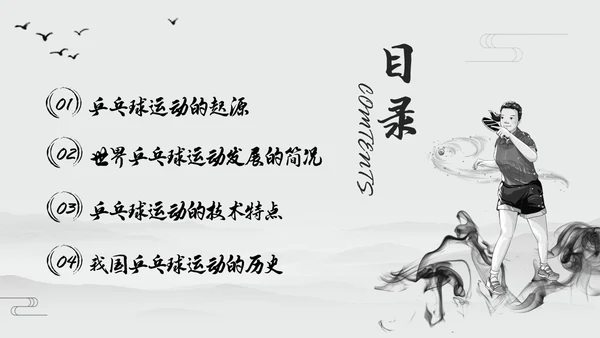 目录
COMTENTS
01 乒乓球运动的起源
02 世界乒乓球运动发展的简况
03 乒乓球运动的技术特点
04 我国乒乓球运动的历史